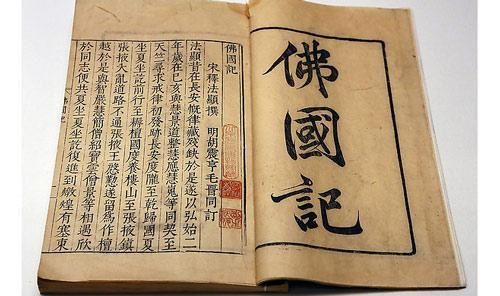 佛國記
佛國記
宋釋法顯撰 明胡震亨毛晉同訂
法顯昔在長安慨律藏殘缺於是遂以弘始二
年歲在己亥與慧景道整慧應慧嵬等同契至
天竺尋求戒律初發跡長安度隴至乾歸國夏
坐夏坐訖前行至褥檀國度養樓山至張掖鎮
張掖大亂道路不通張掖王慇懃遂留為作檀
越於是與智嚴慧簡僧紹寶雲僧景等相遇欣
於同志便共夏坐夏坐訖復進到燉煌有塞東